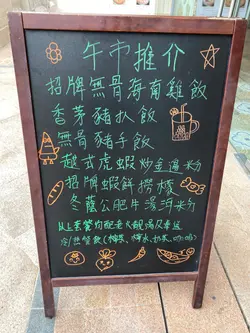 午市推介
招牌無骨海南雞飯
香茅豬扒飯
無骨豬手飯
越式虎蝦炒金邊粉
招牌蝦餅撈檬
冬蔭公肥牛湯河粉
以上套餐均配老火靚湯及
冷/熱餐飲